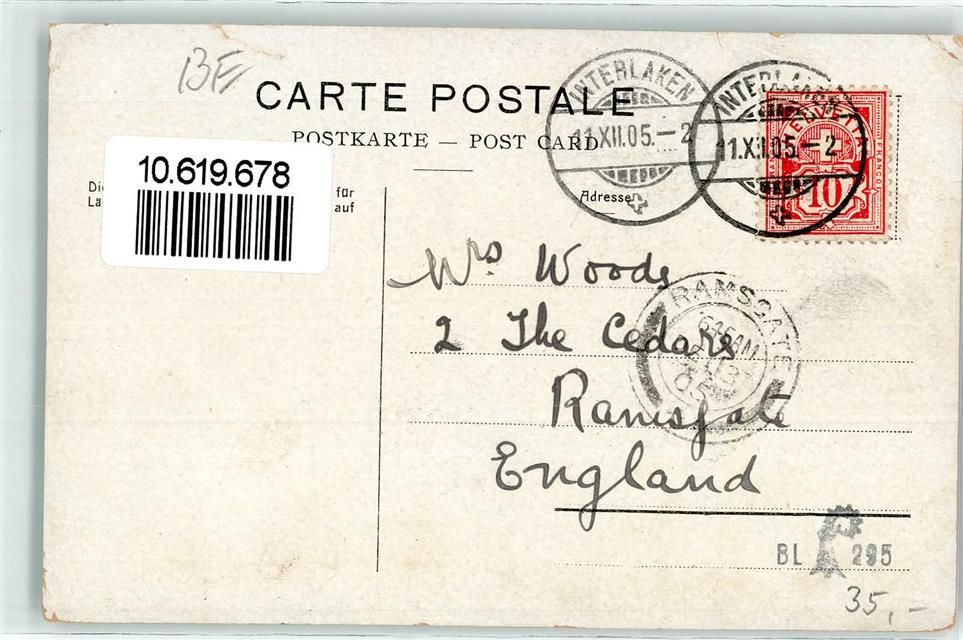 BE
CARTE POSTALE
POSTKARTE — POST CARD
10.619.678
Die für
auf
Adresse
INTERLAKEN
11.XII.05.–2
INTERLAKEN
11.XII.05.–2
HELVETIA
FRANCO
10
Mrs Woods
2 The Cedars
Ramsgate
England
RAMSGATE
615AM
05
BL 295
35,-